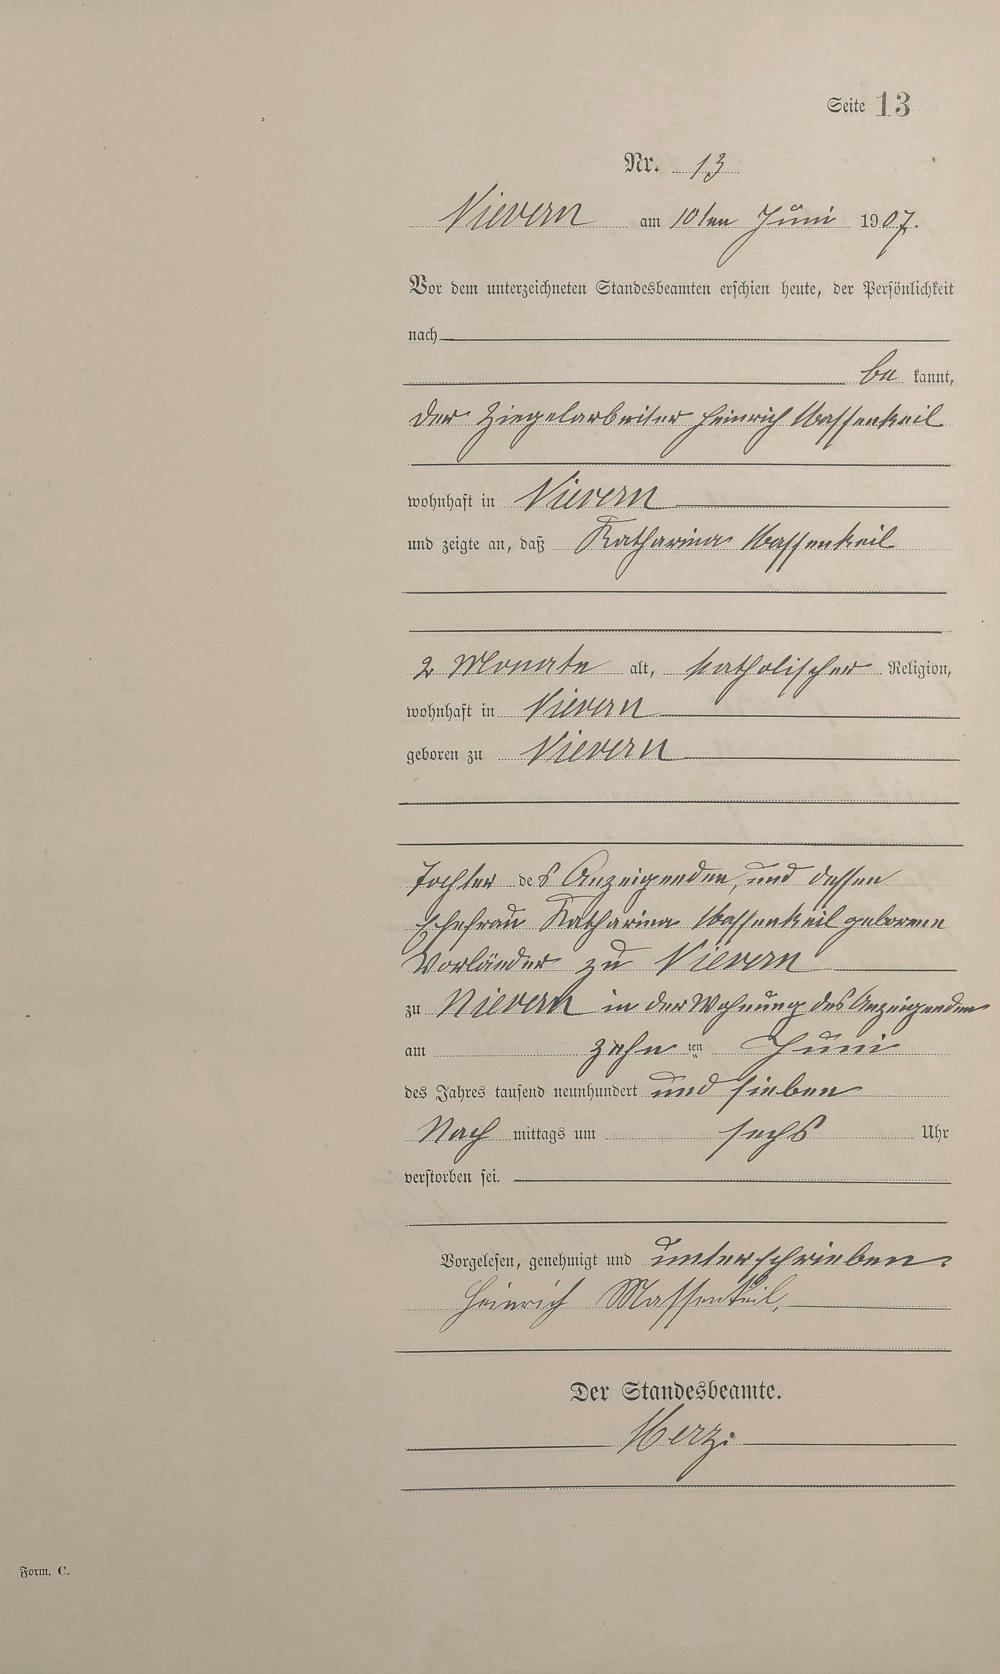 Seite 13
Nr. 13
Nievern am 10ten Juni 1907.
Vor dem unterzeichneten Standesbeamten erschien heute, der Persönlichkeit
nach
be kannt,
der Ziegelarbeiter Heinrich Massenkeil
wohnhaft in Nievern
und zeigte an, daß Katharina Massenkeil
2 Monate alt, katholischer Religion,
wohnhaft in Nievern
geboren zu Nievern
Tochter des Anzeigenden, und dessen
Ehefrau Katharina Massenkeil geborene
Vorländer zu Nievern
zu Nievern in der Wohnung des Anzeigenden
am zehn ten Juni
des Jahres tausend neunhundert und sieben
Nach mittags um sechs Uhr
verstorben sei.
Vorgelesen, genehmigt und unterschrieben.
Heinrich Massenkeil,
Der Standesbeamte.
Herz.
Form. C.